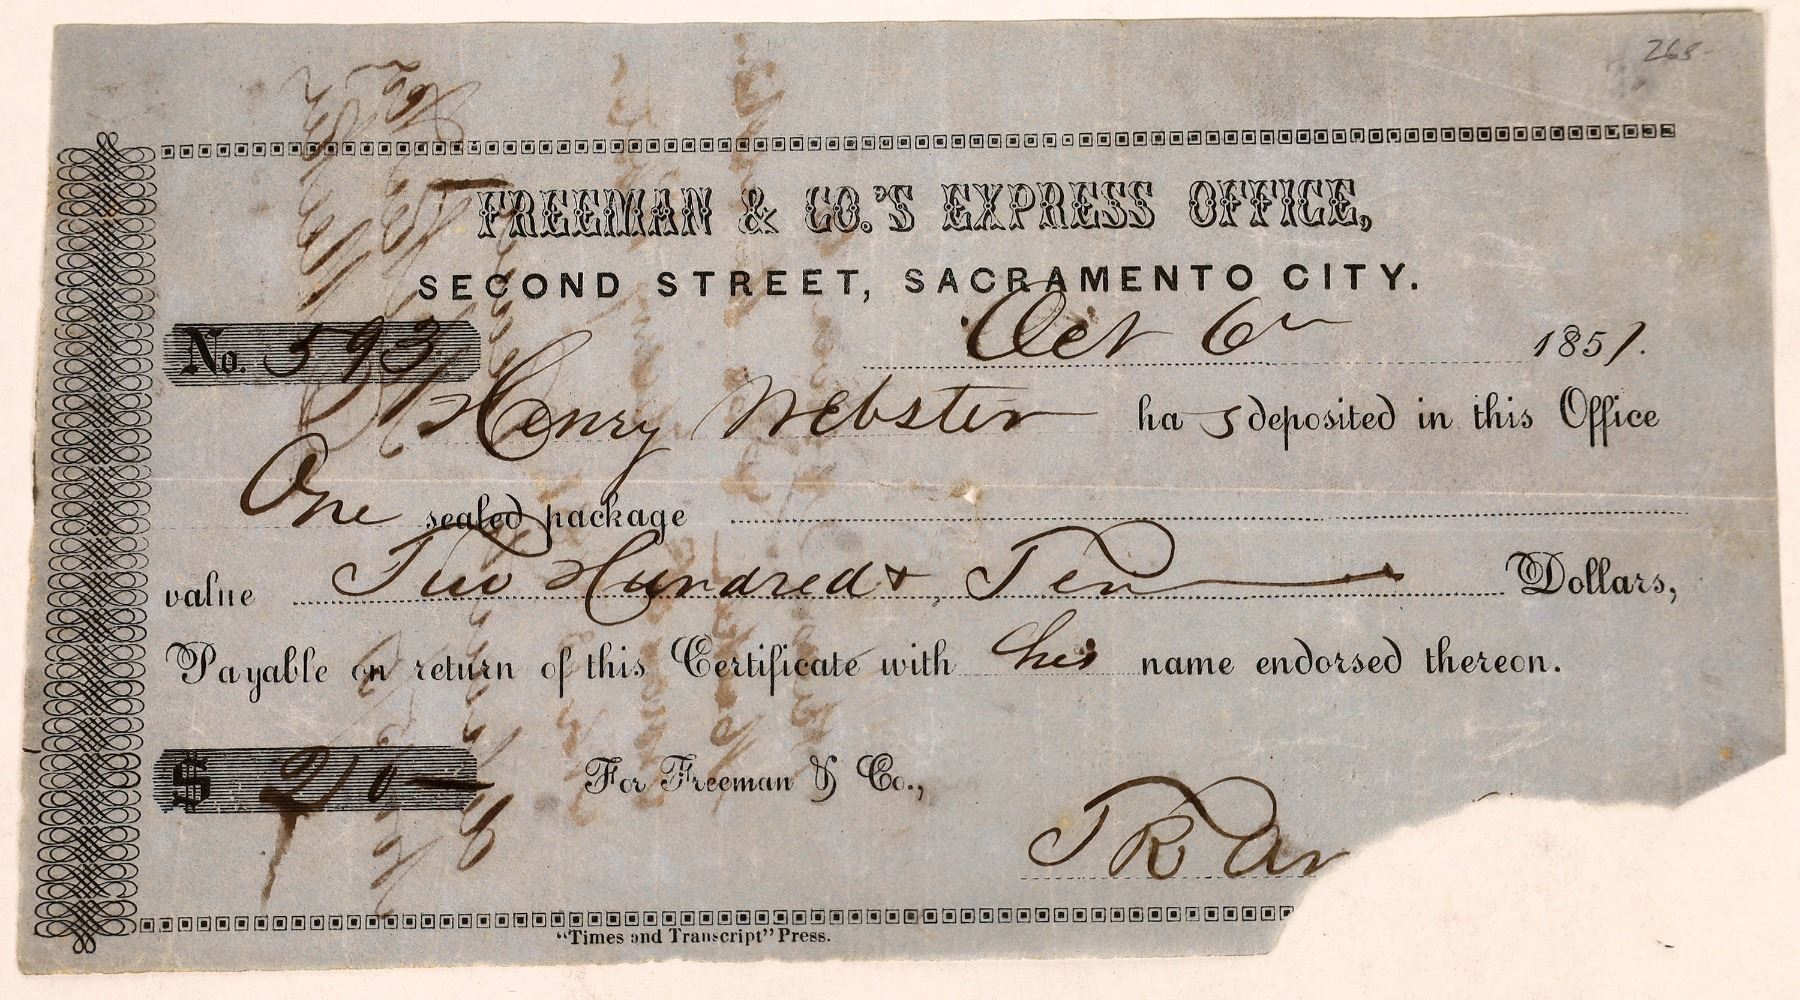 265-
FREEMAN & CO.'S EXPRESS OFFICE,
SECOND STREET, SACRAMENTO CITY.
No. 593 Oct 6 1851.
Henry Webster has deposited in this Office
One sealed package
value Two Hundred & Ten Dollars,
Payable on return of this Certificate with his name endorsed thereon.
$ 210 For Freeman & Co.,
J R
"Times and Transcript" Press.